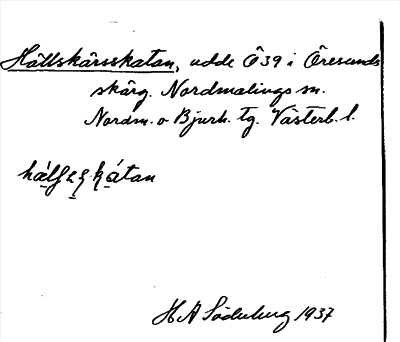 Hällskärsskatan, udde Ö 39 i Öresunds
skärg. Nordmalings sn.
Nordm. o Bjurh. tg. Västerb. l.
H A Söderberg 1937